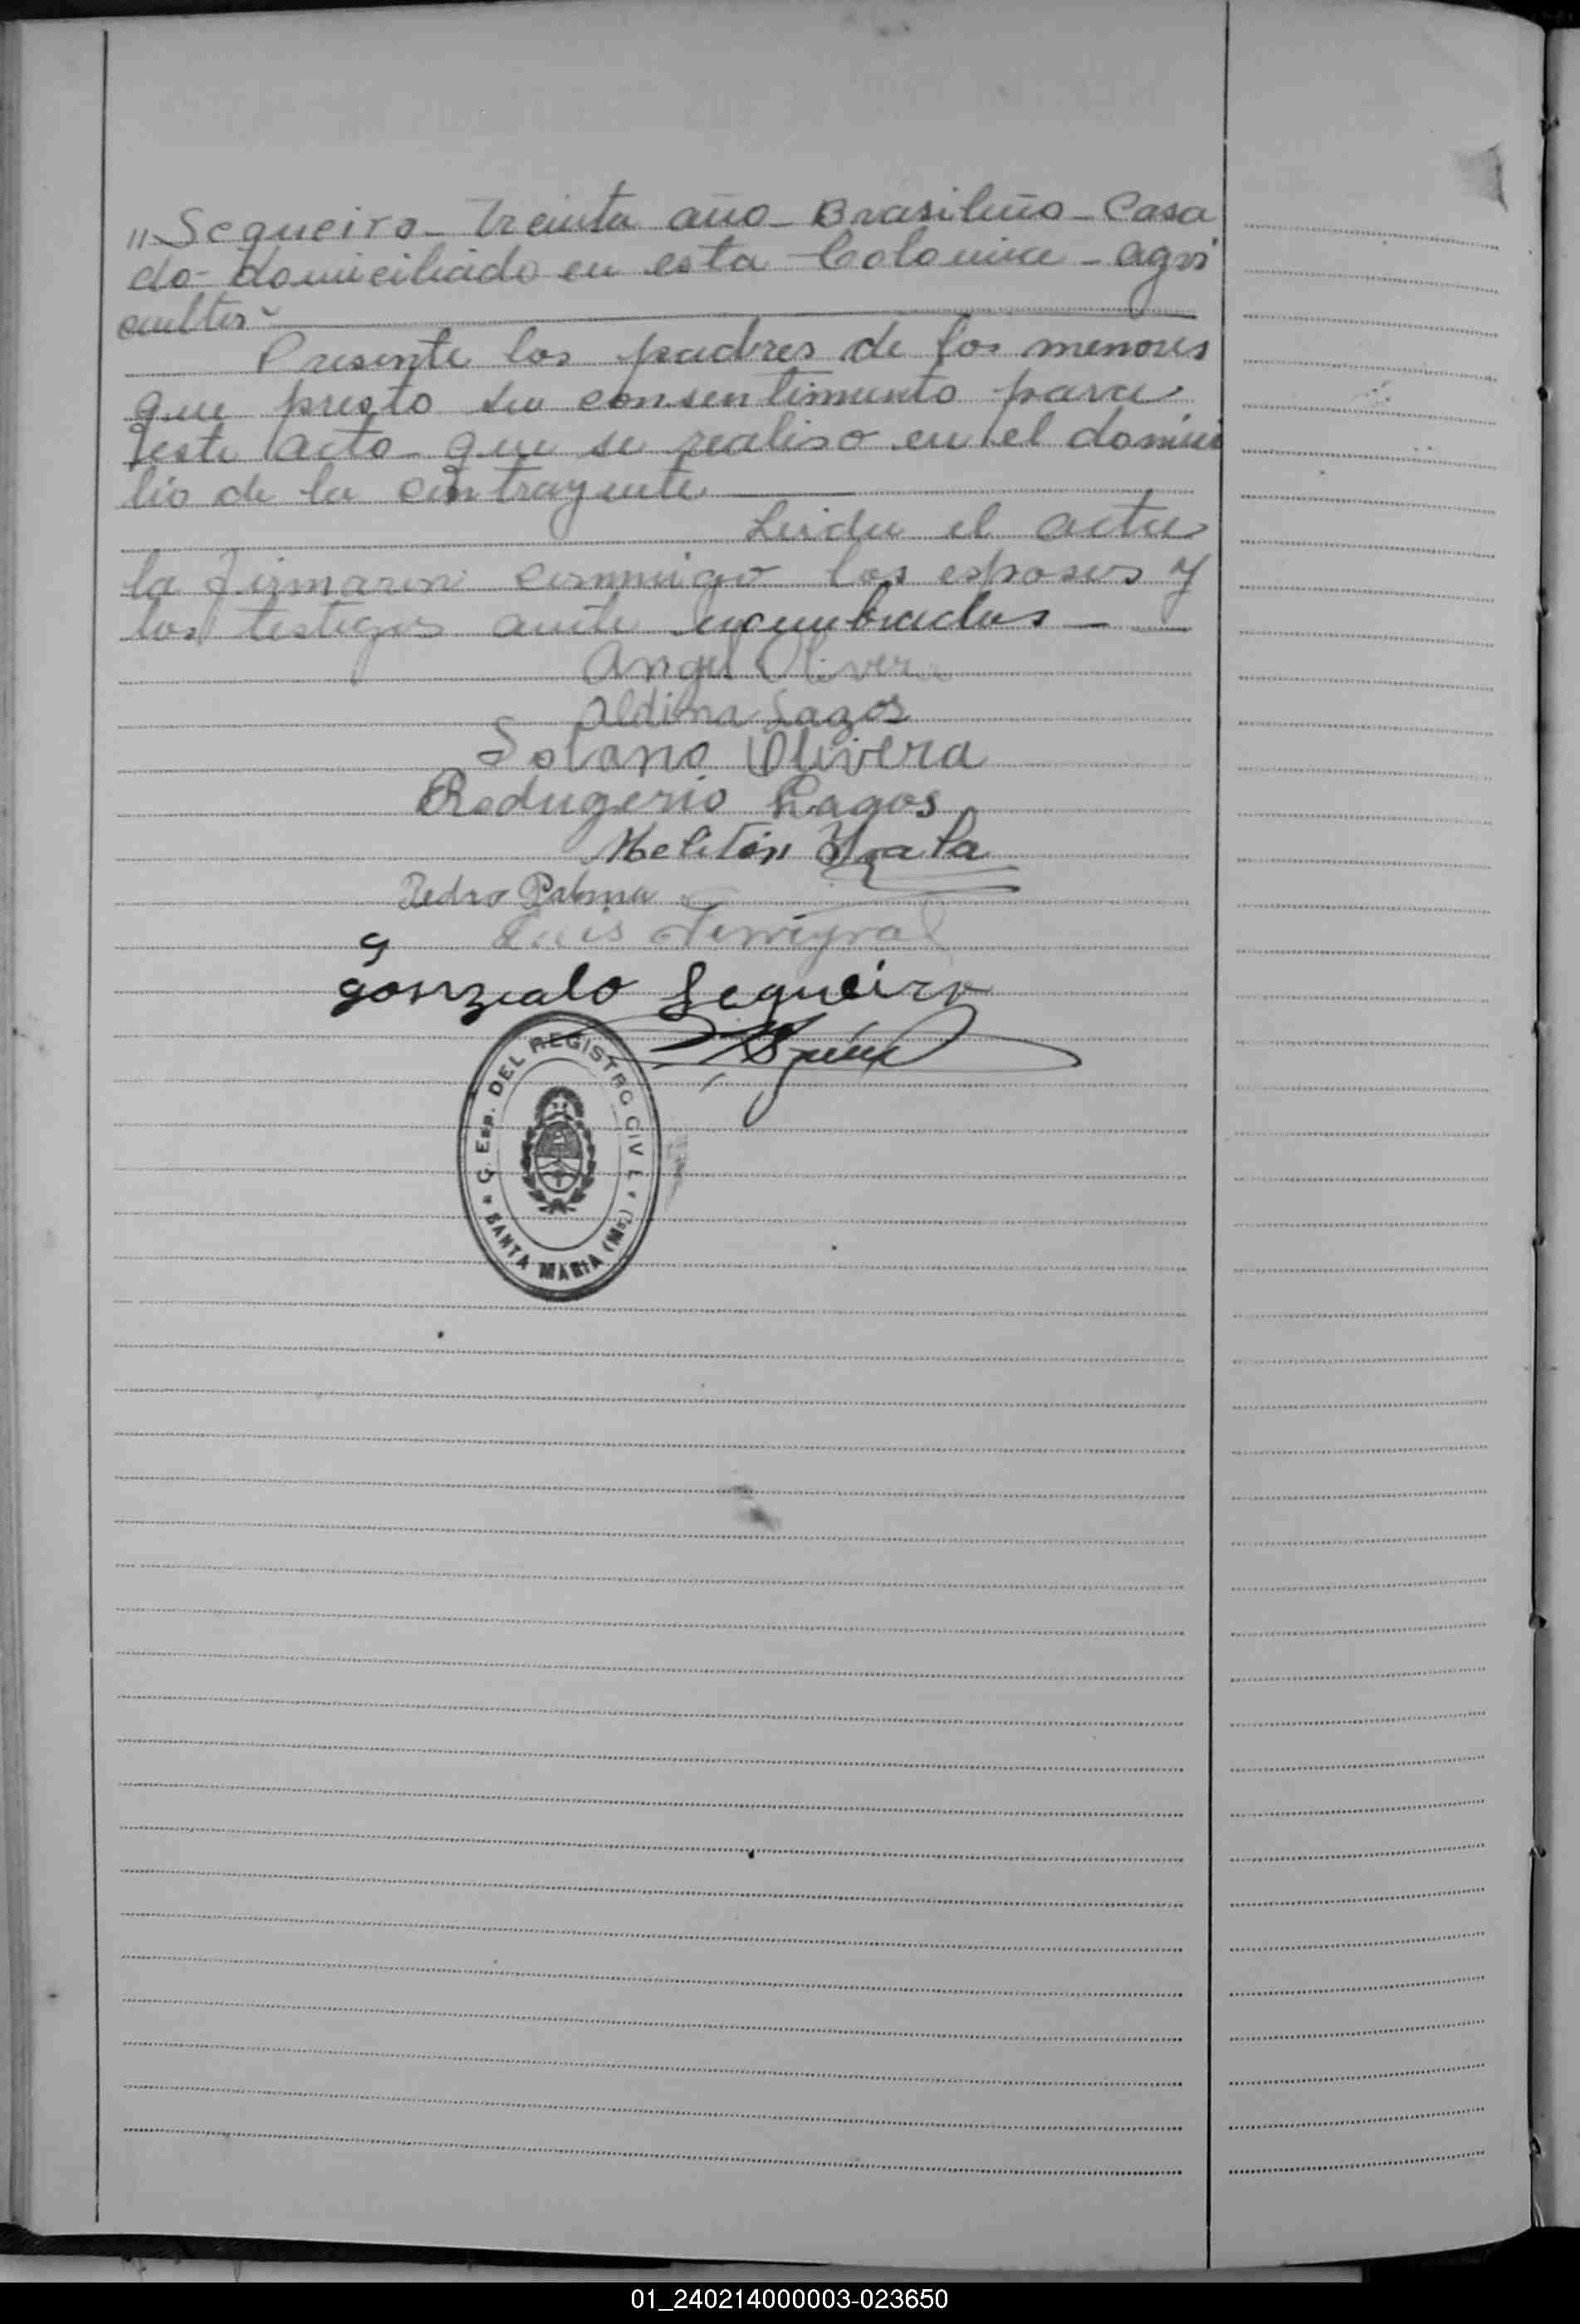 " Sequeira - Treinta año - Brasileño - Casa
do - domiciliado en esta Colonia - agri
cultor -
Presente los padres de los menores
que presto su consentimiento para
este acto - que se realiso en el domici
lio de la contrayente
Leida el acta
la firmaron conmigo los esposos y
los testigos ante nombrados -
Angel Olivera
Aldina Lagos
Solano Olivera
Rodugerio Lagos
Meliton
Pedro Palma
Luis
G
Gonzalo Sequeira
G. Esp. DEL REGISTRO CIVIL
SANTA MARIA (Mis.)
01_240214000003-023650